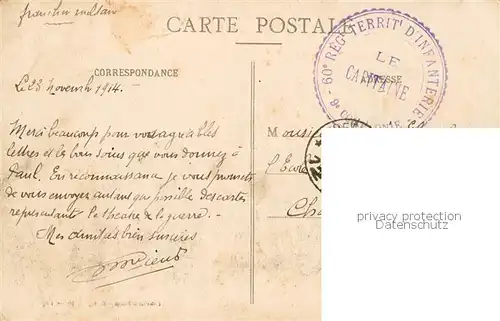 franchise militaire
CARTE POSTALE
60e REGT TERRIT' D'INFANTERIE
LE
CAPITAINE
CORRESPONDANCE
ADRESSE
Le 28 Novembre 1914.
Merci beaucoup pour vos agréables
lettres et les bons soins que vous donnez à
Paul. En reconnaissance je vous promets
de vous envoyer autant que possible des cartes
représentant le théâtre de la guerre. -
Mes amitiés bien sincères
Monsieu
l'Eco
Cha
Copyright protection
www.oldthing.de